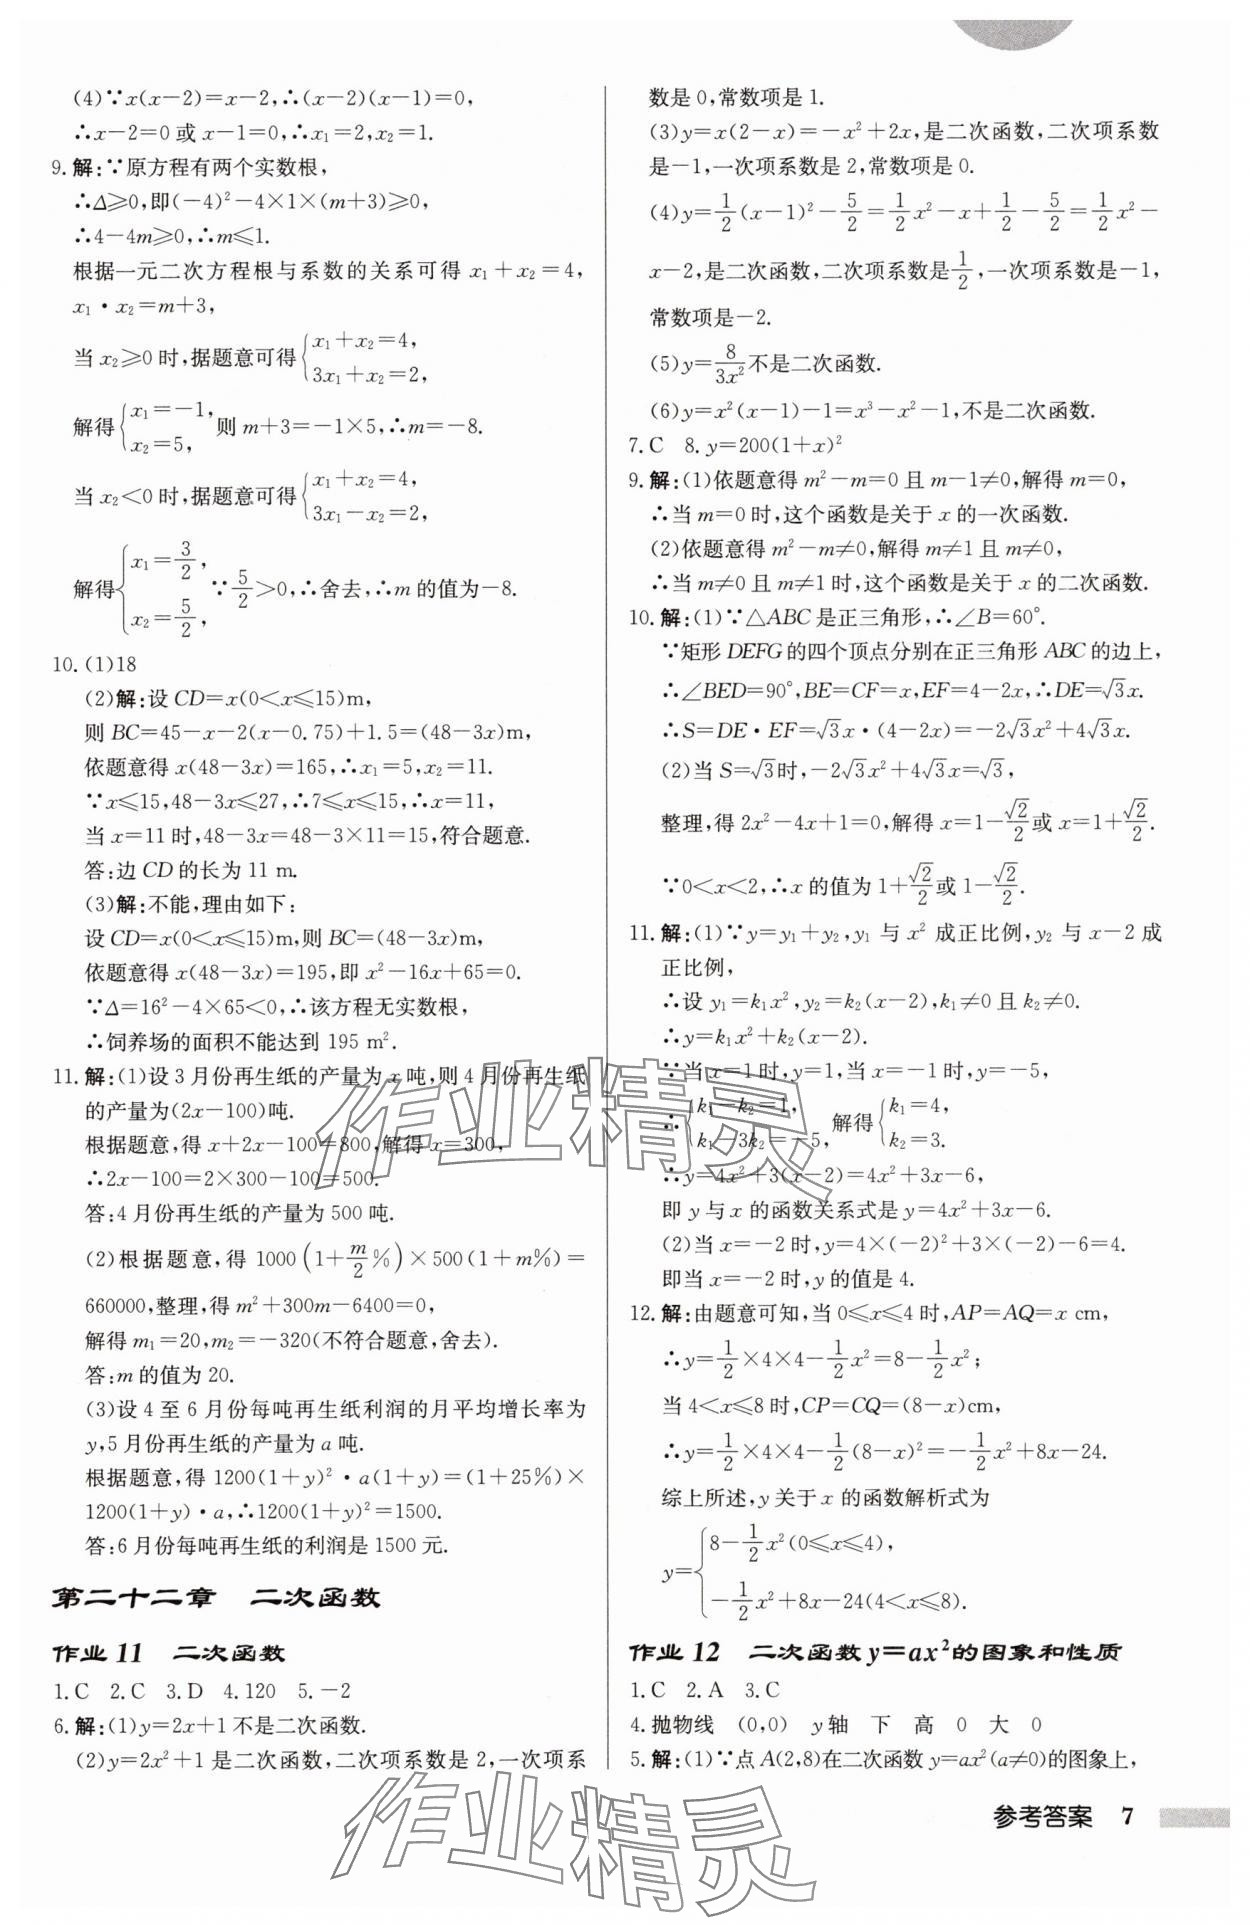 (4)∵x(x-2)=x-2,∴(x-2)(x-1)=0,
∴x-2=0 或 x-1=0,∴x₁=2,x₂=1.
9.解:∵原方程有两个实数根,
∴Δ≥0,即(-4)²-4×1×(m+3)≥0,
∴4-4m≥0,∴m≤1.
根据一元二次方程根与系数的关系可得 x₁+x₂=4,
x₁·x₂=m+3,
当 x₂≥0 时,据题意可得{x₁+x₂=4, 3x₁+x₂=2,
解得{x₁=-1, x₂=5, 则 m+3=-1×5,∴m=-8.
当 x₂<0 时,据题意可得{x₁+x₂=4, 3x₁-x₂=2,
解得{x₁=3/2, x₂=5/2, ∵5/2>0,∴舍去,∴m 的值为-8.
10.(1)18
(2)解:设 CD=x(0<x≤15)m,
则 BC=45-x-2(x-0.75)+1.5=(48-3x)m,
依题意得 x(48-3x)=165,∴x₁=5,x₂=11.
∵x≤15,48-3x≤27,∴7≤x≤15,∴x=11,
当 x=11 时,48-3x=48-3×11=15,符合题意.
答:边 CD 的长为 11 m.
(3)解:不能,理由如下:
设 CD=x(0<x≤15)m,则 BC=(48-3x)m,
依题意得 x(48-3x)=195,即 x²-16x+65=0.
∵Δ=16²-4×65<0,∴该方程无实数根,
∴饲养场的面积不能达到 195 m².
11.解:(1)设 3 月份再生纸的产量为 x 吨,则 4 月份再生纸
的产量为(2x-100)吨.
根据题意,得 x+2x-100=800,解得 x=300,
∴2x-100=2×300-100=500.
答:4 月份再生纸的产量为 500 吨.
(2)根据题意,得 1000(1+m/2%)×500(1+m%)=
660000,整理,得 m²+300m-6400=0,
解得 m₁=20,m₂=-320(不符合题意,舍去).
答:m 的值为 20.
(3)设 4 至 6 月份每吨再生纸利润的月平均增长率为
y,5 月份再生纸的产量为 a 吨.
根据题意,得 1200(1+y)²·a(1+y)=(1+25%)×
1200(1+y)·a,∴1200(1+y)²=1500.
答:6 月份每吨再生纸的利润是 1500 元.
第二十二章 二次函数
作业 11 二次函数
1.C 2.C 3.D 4.120 5.-2
6.解:(1)y=2x+1 不是二次函数.
(2)y=2x²+1 是二次函数,二次项系数是 2,一次项系
数是 0,常数项是 1.
(3)y=x(2-x)=-x²+2x,是二次函数,二次项系数
是-1,一次项系数是 2,常数项是 0.
(4)y=1/2(x-1)²-5/2=1/2x²-x+1/2-5/2=1/2x²-
x-2,是二次函数,二次项系数是1/2,一次项系数是-1,
常数项是-2.
(5)y=8/3x²不是二次函数.
(6)y=x²(x-1)-1=x³-x²-1,不是二次函数.
7.C 8.y=200(1+x)²
9.解:(1)依题意得 m²-m=0 且 m-1≠0,解得 m=0,
∴当 m=0 时,这个函数是关于 x 的一次函数.
(2)依题意得 m²-m≠0,解得 m≠1 且 m≠0,
∴当 m≠0 且 m≠1 时,这个函数是关于 x 的二次函数.
10.解:(1)∵△ABC 是正三角形,∴∠B=60°.
∵矩形 DEFG 的四个顶点分别在正三角形 ABC 的边上,
∴∠BED=90°,BE=CF=x,EF=4-2x,∴DE=√3x.
∴S=DE·EF=√3x·(4-2x)=-2√3x²+4√3x.
(2)当 S=√3时,-2√3x²+4√3x=√3,
整理,得 2x²-4x+1=0,解得 x=1-√2/2或 x=1+√2/2.
∵0<x<2,∴x 的值为 1+√2/2或 1-√2/2.
11.解:(1)∵y=y₁+y₂,y₁ 与 x² 成正比例,y₂ 与 x-2 成
正比例,
∴设 y₁=k₁x²,y₂=k₂(x-2),k₁≠0 且 k₂≠0.
∴y=k₁x²+k₂(x-2).
∵当 x=1 时,y=1,当 x=-1 时,y=-5,
∴{k₁-k₂=1, k₁-3k₂=-5, 解得{k₁=4, k₂=3.
∴y=4x²+3(x-2)=4x²+3x-6,
即 y 与 x 的函数关系式是 y=4x²+3x-6.
(2)当 x=-2 时,y=4×(-2)²+3×(-2)-6=4.
即当 x=-2 时,y 的值是 4.
12.解:由题意可知,当 0≤x≤4 时,AP=AQ=x cm,
∴y=1/2×4×4-1/2x²=8-1/2x²;
当 4<x≤8 时,CP=CQ=(8-x)cm,
∴y=1/2×4×4-1/2(8-x)²=-1/2x²+8x-24.
综上所述,y 关于 x 的函数解析式为
y={8-1/2x²(0≤x≤4), -1/2x²+8x-24(4<x≤8).
作业 12 二次函数 y=ax²的图象和性质
1.C 2.A 3.C
4.抛物线 (0,0) y 轴 下 高 0 大 0
5.解:(1)∵点 A(2,8)在二次函数 y=ax²(a≠0)的图象上,
作业精灵
作业精灵
参考答案 7